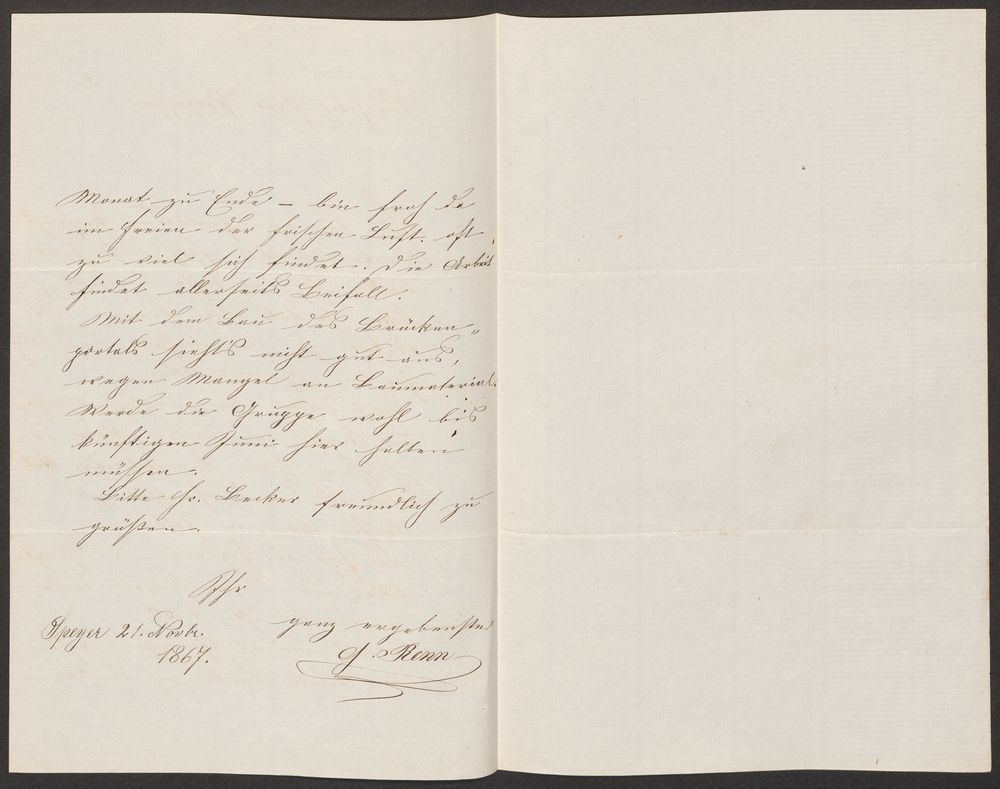 Monat zu Ende – bin froh da
im Freien der frischen Luft oft
zu viel sich findet. Die Arbeit
findet allerseits Beifall.
Mit dem Bau des Brücken„
portals siehts nicht gut aus,
wegen Mangel an Baumaterial.
Werde die Gruppe wohl bis
künftigen Juni hier halten
müssen.
Bitte Hr. Becker freundlich zu
grüßen.
Ihr
ganz ergebenster
Speyer 21. Novbr.
1867.
G. Renn